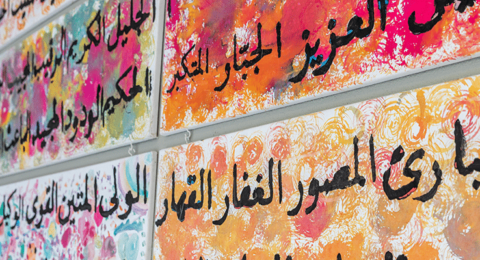 العزيز الجبار المتكبر
الجليل الكريم الرقيب
الحكيم الودود المجيد الباعث
بارئ المصور الغفار القهار
الولى المتين القوى